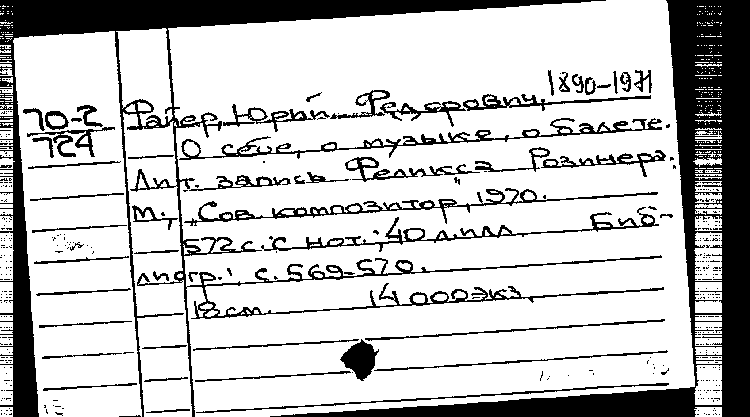 1890-1971
70-2 Файер, Юрий Федорович,
724 О себе, о музыке, о балете.
Лит. запись Феликса Розинера.
М., „Сов. композитор", 1970.
572 с. с нот.; 40 л. илл. Биб-
лиогр.: с. 569-570.
18 см. 14 000 экз.